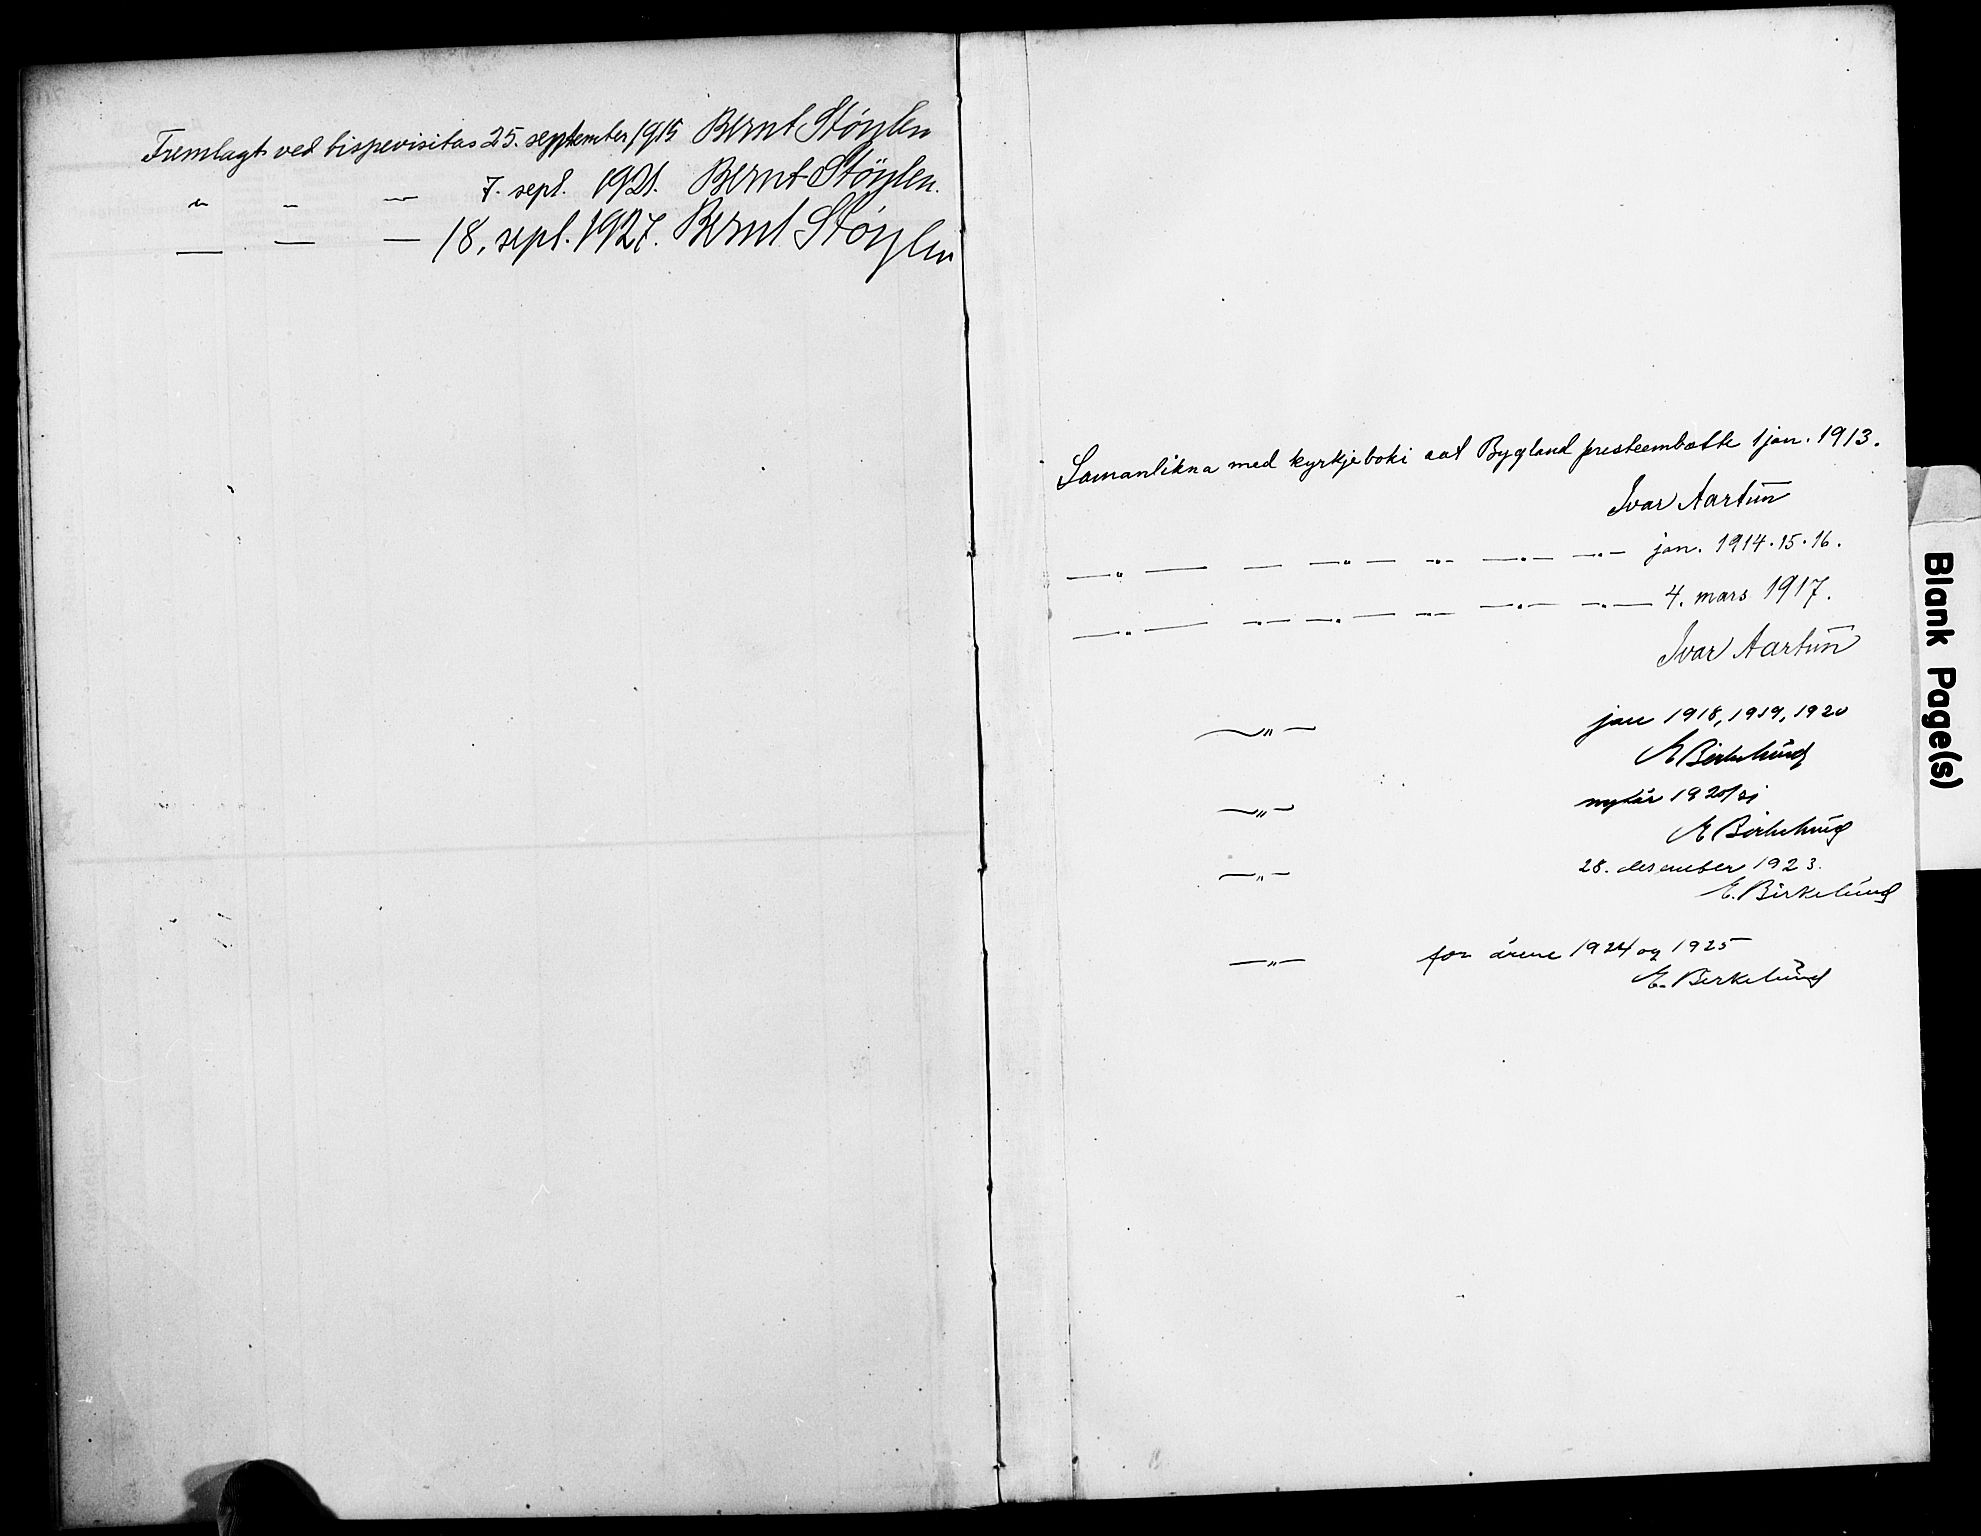 Fremlagt ved bispevisitas 25. september 1915 Bernt Støylen
" - — 7. sept. 1921. Bernt Støylen.
— — — 18. sept. 1927. Bernt Støylen
Samanlikna med kyrkjeboki aat Bygland presteembætte 1 jan. 1913.
Ivar Aartun
—"— — —"— -"- —"— —"— jan. 1914. 15. 16.
—"— -"- —"— -"- —"— —"— 4. mars 1917.
Ivar Aartun
—"— jan 1918, 1919, 1920
E Birkelund
—"— nytår 1920/21
E Birkelund
—"— 28. desember 1923.
E. Birkelund
—"— for årene 1924 og 1925
E. Birkelund
Blank Page(s)